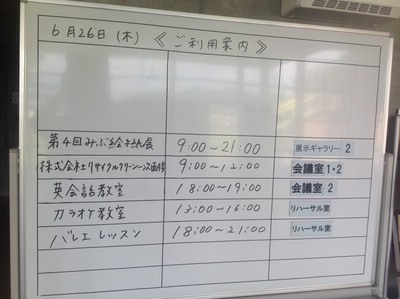 6月26日(木) 《ご利用案内》
第4回みぶ絵きん展 9:00～21:00 展示ギャラリー 2
株式会社リサイクルクリーン一次面接 9:00～12:00 会議室 1・2
英会話教室 18:00～19:00 会議室 2
カラオケ教室 13:00～16:00 リハーサル室
バレエレッスン 18:00～21:00 リハーサル室